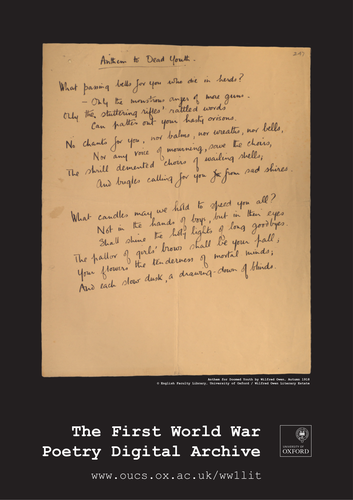 Anthem to Dead Youth.
What passing bells for you who die in herds?
– Only the monstrous anger of more guns.
Only the stuttering rifles' rattled words
Can patter out your hasty orisons.
No chants for you, nor balms, nor wreaths, nor bells,
Nor any voice of mourning, save the choirs,
The shrill demented choirs of wailing shells;
And bugles calling for you from sad shires.
What candles may we hold to speed you all?
Not in the hands of boys, but in their eyes
Shall shine the holy lights of long goodbyes.
The pallor of girls' brows shall be your pall;
Your flowers the tenderness of mortal minds;
And each slow dusk, a drawing-down of blinds.
Anthem for Doomed Youth by Wilfred Owen, Autumn 1918
© English Faculty Library, University of Oxford / Wilfred Owen Literary Estate
The First World War
Poetry Digital Archive
UNIVERSITY OF
OXFORD
www.oucs.ox.ac.uk/ww1lit